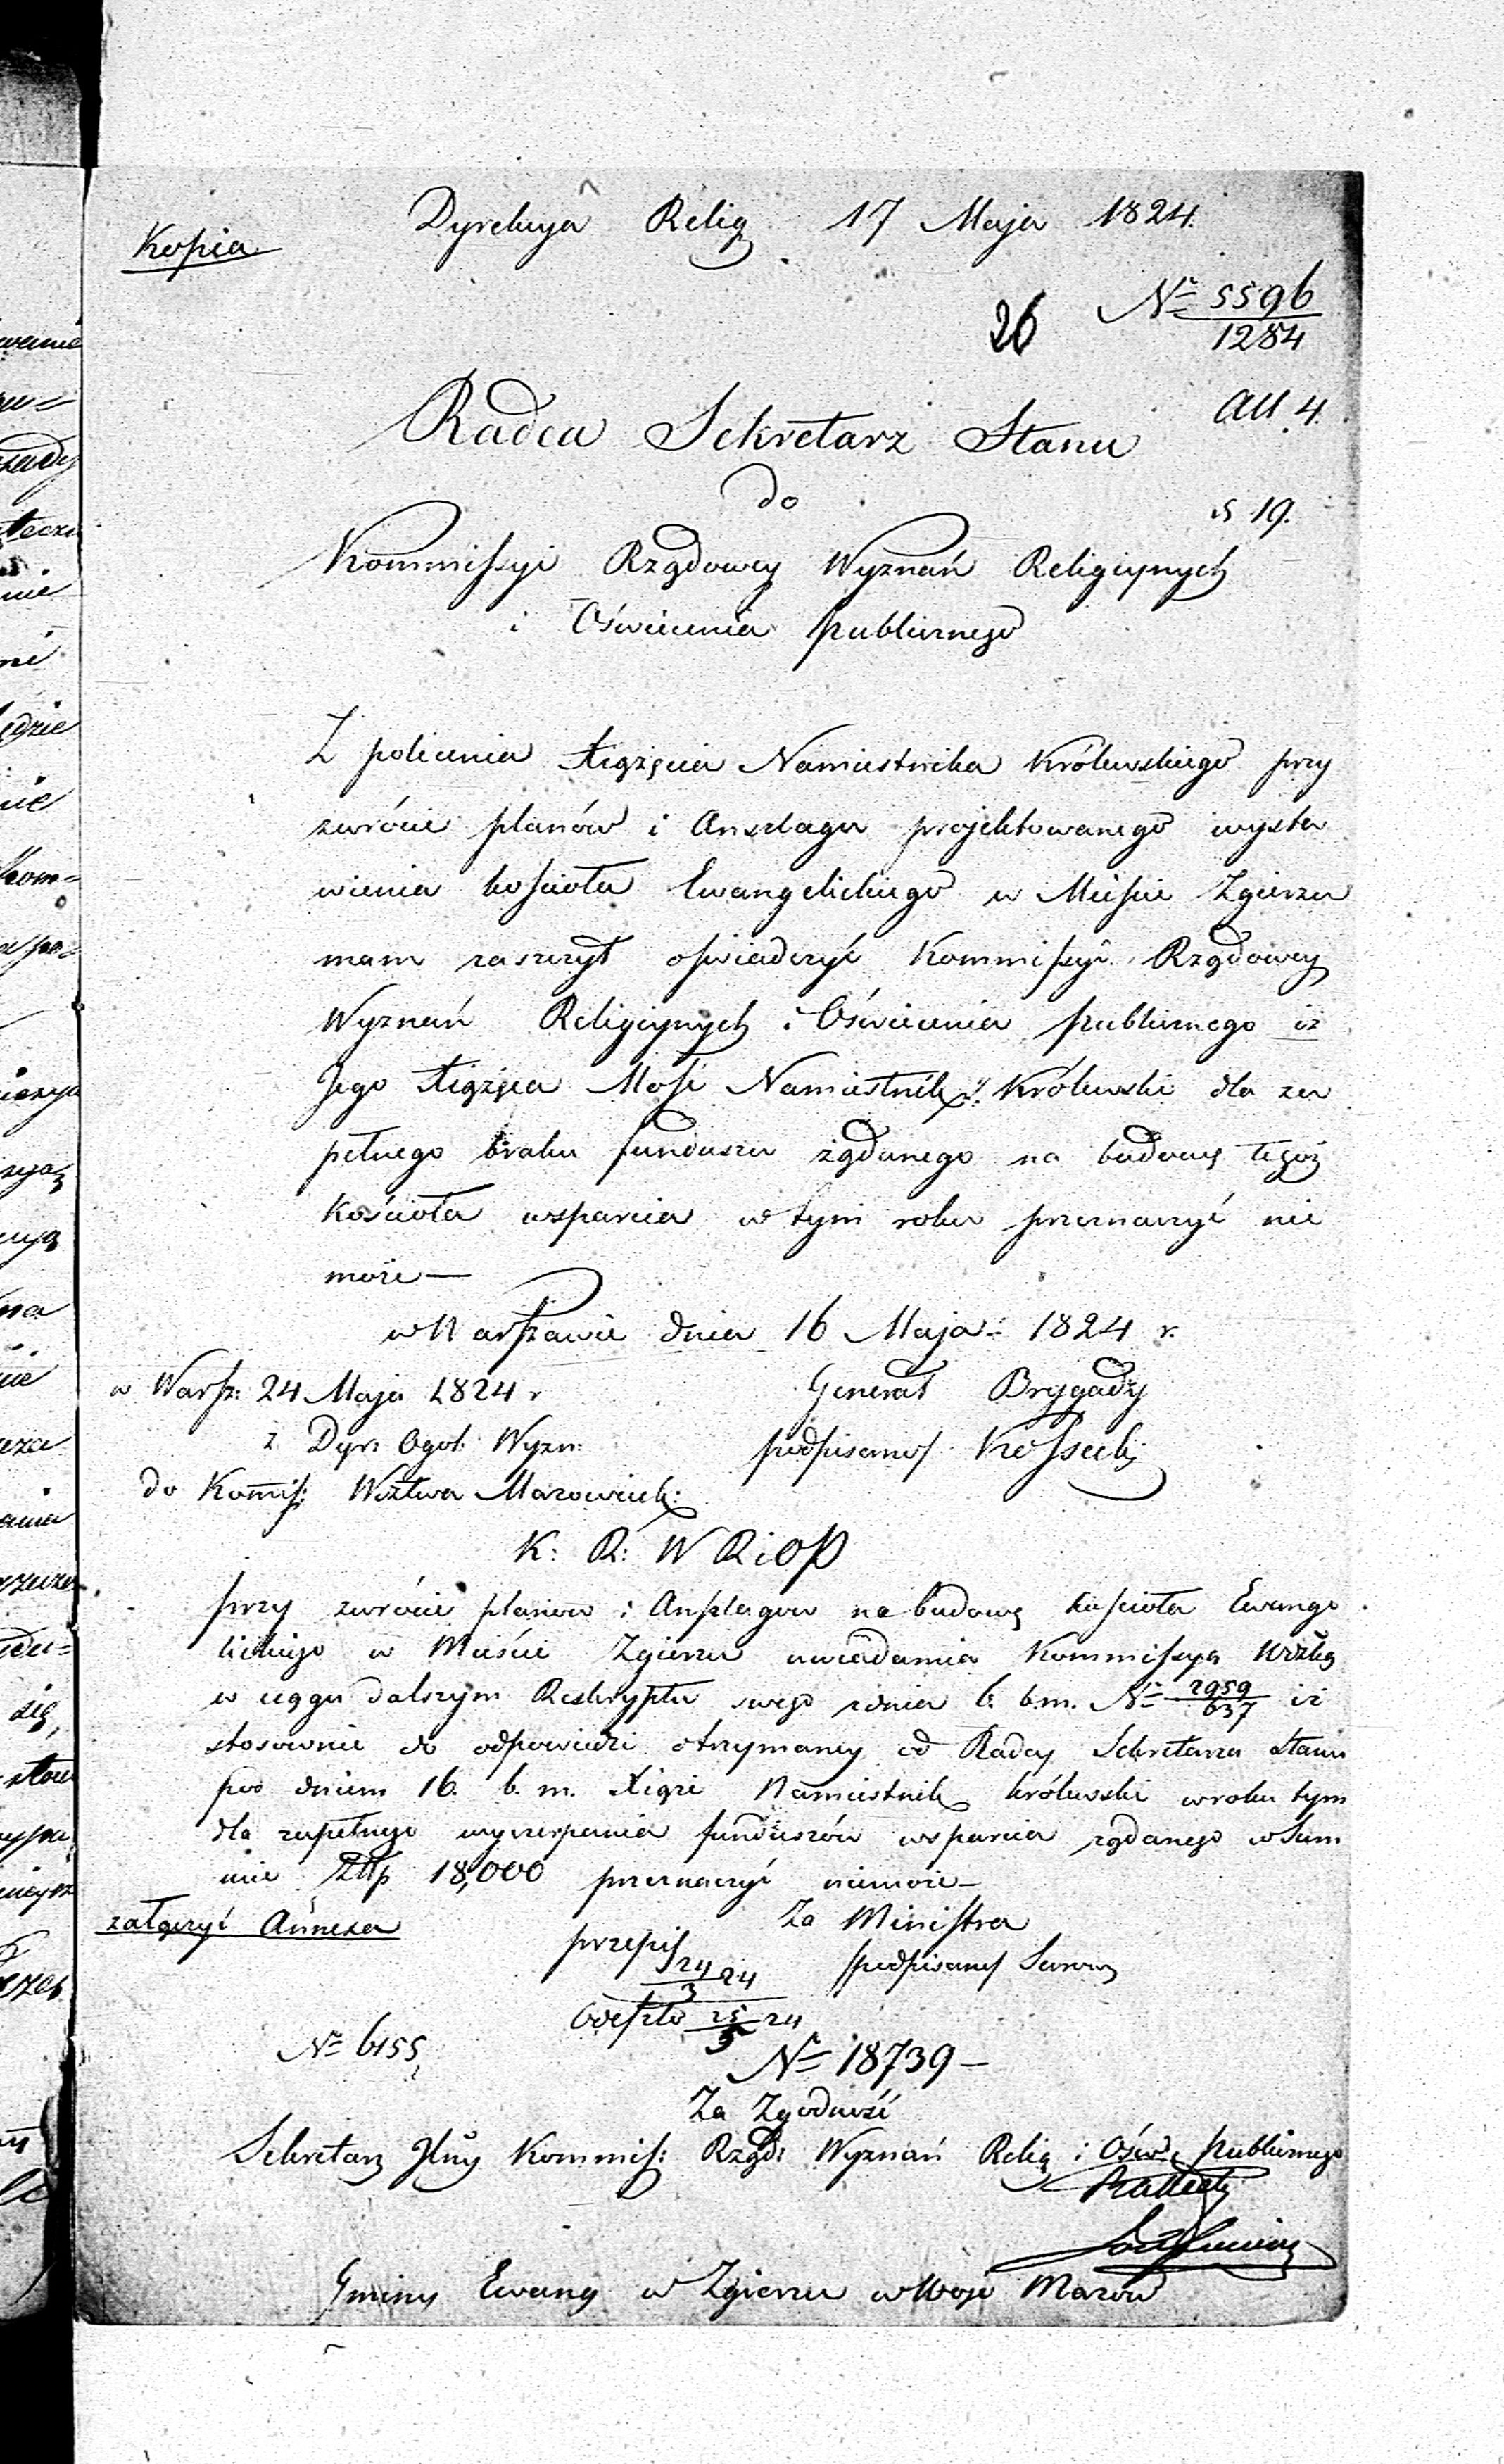 Dyrekcya Relig. 17 Maja 1824.
Kopia
26 Nr 5596
1284
All. 4.
19.
Radca Sekretarz Stanu
do
Kommissyi Rządowey Wyznań Religiynych
i Oświecenia publicznego
Z polecenia Xiążęcia Namiestnika Królewskiego przy
zwrócie planów i Anszlagu projektowanego wysta
wienia kościoła Ewangelickiego w Mieście Zgierzu
mam zaszczyt oświadczyć Kommissyi Rządowey
Wyznań Religiynych i Oświecenia publicznego iż
Jego Xiążęca Mość Namiestnik Królewski dla zu
pełnego braku funduszu żądanego na budowę tegoż
Kościoła wsparcia w tym roku przeznaczyć nie
może —
w Warszawie dnia 16 Maja 1824 r.
w Warsz: 24 Maja 1824 r
Generał Brygady
z Dyr: Ogól: Wyzn:
podpisano Kossecki
do Kommis: Wództwa Mazowieck:
K: R: W R i O P
przy zwrócie planów i Anszlagów na budowę kościoła Ewange
lickiego w Mieście Zgierzu uwiadamia Kommissyą Wdzką
w ciągu dalszym Reskryptu swego z dnia 6. b.m. Nr 2959 iż
637
stosownie do odpowiedzi otrzymaney od Radcy Sekretarza Stanu
pod dniem 16. b. m. Xiąże Namiestnik królewski w roku tym
dla zupełnego wyczerpania funduszów wsparcia żądanego w Sum
mie Złp 18,000 przeznaczyć niemoże —
załączyć Annexa
Za Ministra
przepis 24 24
3
podpisany
Odeszło 25 24
5
Nr 6155
Nr 18739 —
Za Zgodność
Sekretarz Jlny Kommis: Rząd: Wyznań Relig i Ośw: Publicznego
Gminy Ewang w Zgierzu w Woje Mazow